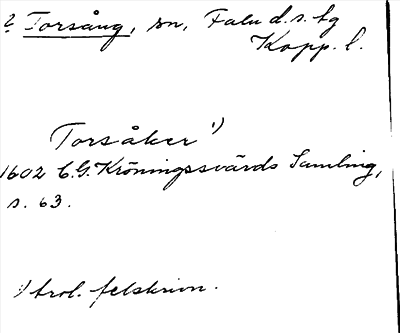 ? Torsång, sn, Falu d.s. tg
Kopp. l.
Torsåker 1)
1602 C.G. Kröningssvärds Samling,
s. 63.
1) trol. felskrivn.